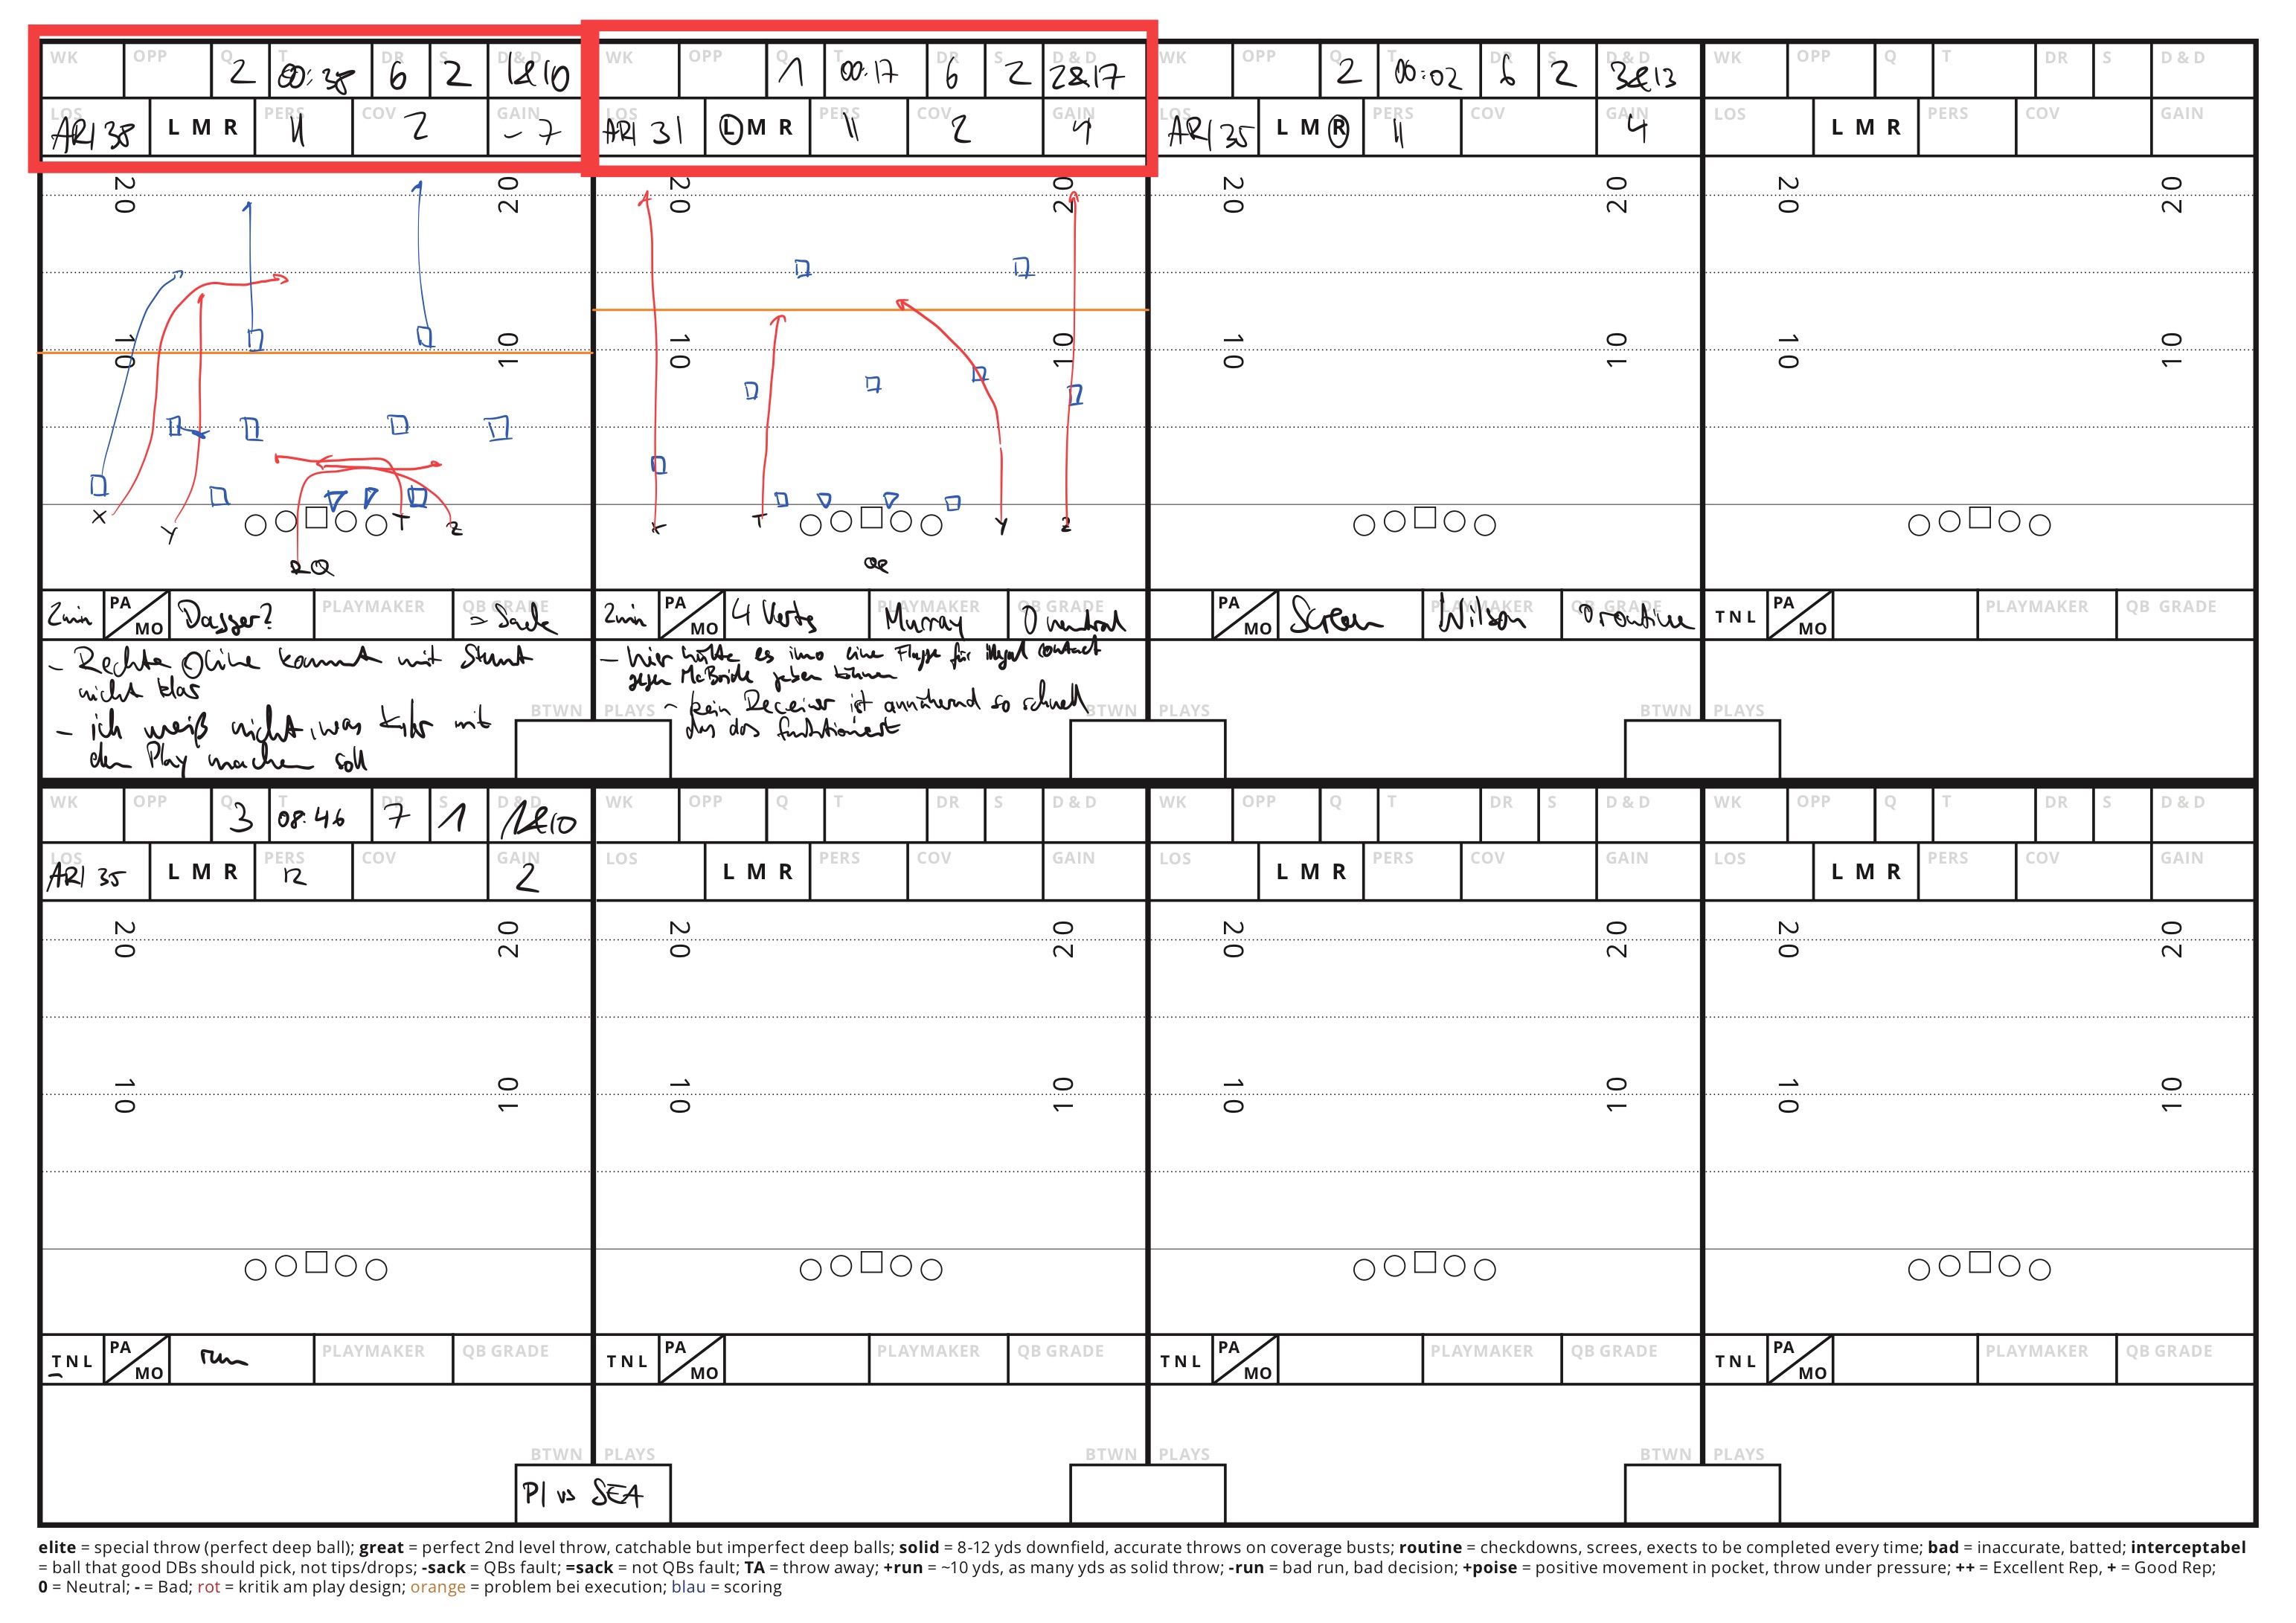 WK OPP Q 2 T 00:38 DR 6 S 2 D & D 1&10
LOS ARI 38 L M R PERS 11 COV 2 GAIN - 7
20 20
10 10
X Y T Z
R Q
2min PA MO Dagger? PLAYMAKER QB GRADE = Sack
- Rechte Oline kommt mit Stunt
nicht klar
- ich weiß nicht, was Kyler mit
dem Play machen soll
BTWN PLAYS
WK OPP Q 1 T 00:17 DR 6 S 2 D & D 2&17
LOS ARI 31 L M R PERS 11 COV 2 GAIN 4
20 20
10 10
X T Y Z
2min PA MO 4 Verts PLAYMAKER Murray QB GRADE 0 neutral
- hier hätte es imo eine Flagge für illegal contact
gegen McBride geben können
- kein Receiver ist annähernd so schnell
dass das funktioniert
BTWN PLAYS
WK OPP Q 2 T 00:02 DR 6 S 2 D & D 3&13
LOS ARI 35 L M R PERS 11 COV GAIN 4
20 20
10 10
PA MO Screen PLAYMAKER Wilson QB GRADE 0 routine
BTWN PLAYS
WK OPP Q T DR S D & D
LOS L M R PERS COV GAIN
20 20
10 10
T N L PA MO PLAYMAKER QB GRADE
WK OPP Q 3 T 08:46 DR 7 S 1 D & D 1&10
LOS ARI 35 L M R PERS 12 COV GAIN 2
20 20
10 10
T N L PA MO run PLAYMAKER QB GRADE
BTWN PLAYS
PI vs SEA
WK OPP Q T DR S D & D
LOS L M R PERS COV GAIN
20 20
10 10
T N L PA MO PLAYMAKER QB GRADE
BTWN PLAYS
WK OPP Q T DR S D & D
LOS L M R PERS COV GAIN
20 20
10 10
T N L PA MO PLAYMAKER QB GRADE
BTWN PLAYS
WK OPP Q T DR S D & D
LOS L M R PERS COV GAIN
20 20
10 10
T N L PA MO PLAYMAKER QB GRADE
elite = special throw (perfect deep ball); great = perfect 2nd level throw, catchable but imperfect deep balls; solid = 8-12 yds downfield, accurate throws on coverage busts; routine = checkdowns, screes, exects to be completed every time; bad = inaccurate, batted; interceptabel
= ball that good DBs should pick, not tips/drops; -sack = QBs fault; =sack = not QBs fault; TA = throw away; +run = ~10 yds, as many yds as solid throw; -run = bad run, bad decision; +poise = positive movement in pocket, throw under pressure; ++ = Excellent Rep, + = Good Rep;
0 = Neutral; - = Bad; rot = kritik am play design; orange = problem bei execution; blau = scoring